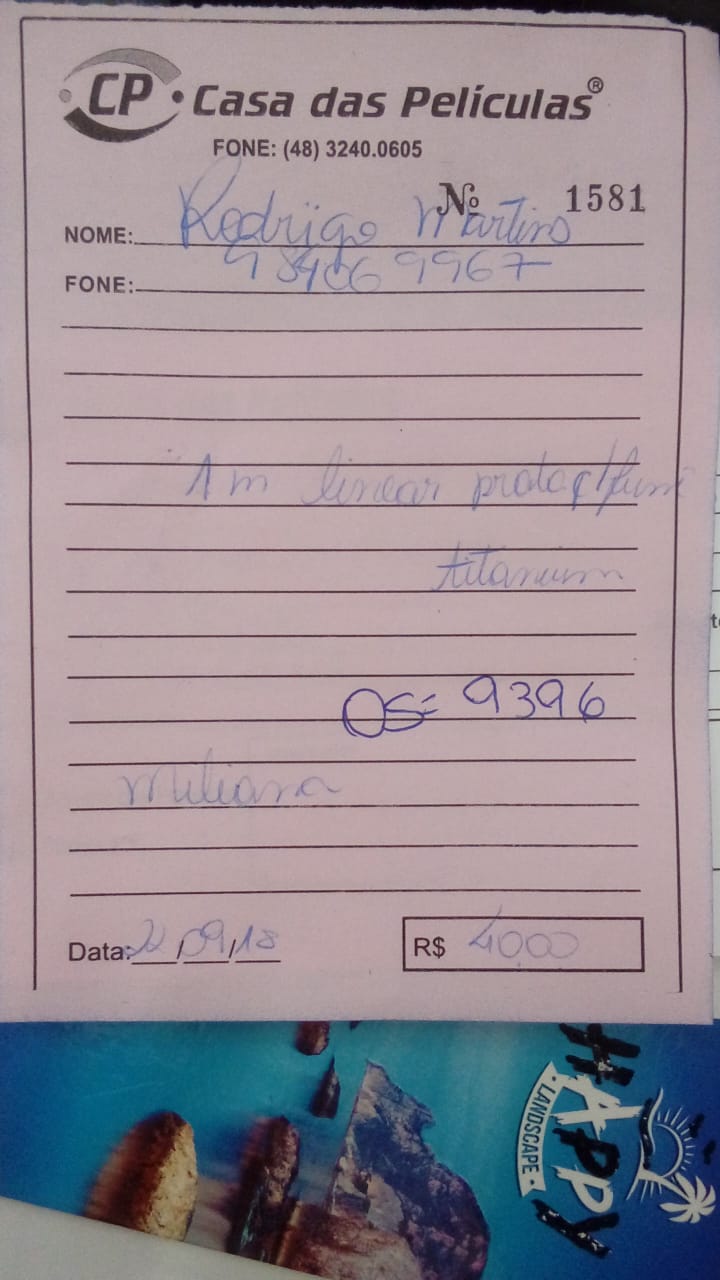 CP • Casa das Películas®
FONE: (48) 3240.0605
Nº 1581
NOME: Rodrigo Martins
FONE: 984069967
1m linear prata
titanium
OS= 9396
Data: 22/09/18
R$ 40,00
HAPPY
• LANDSCAPE •